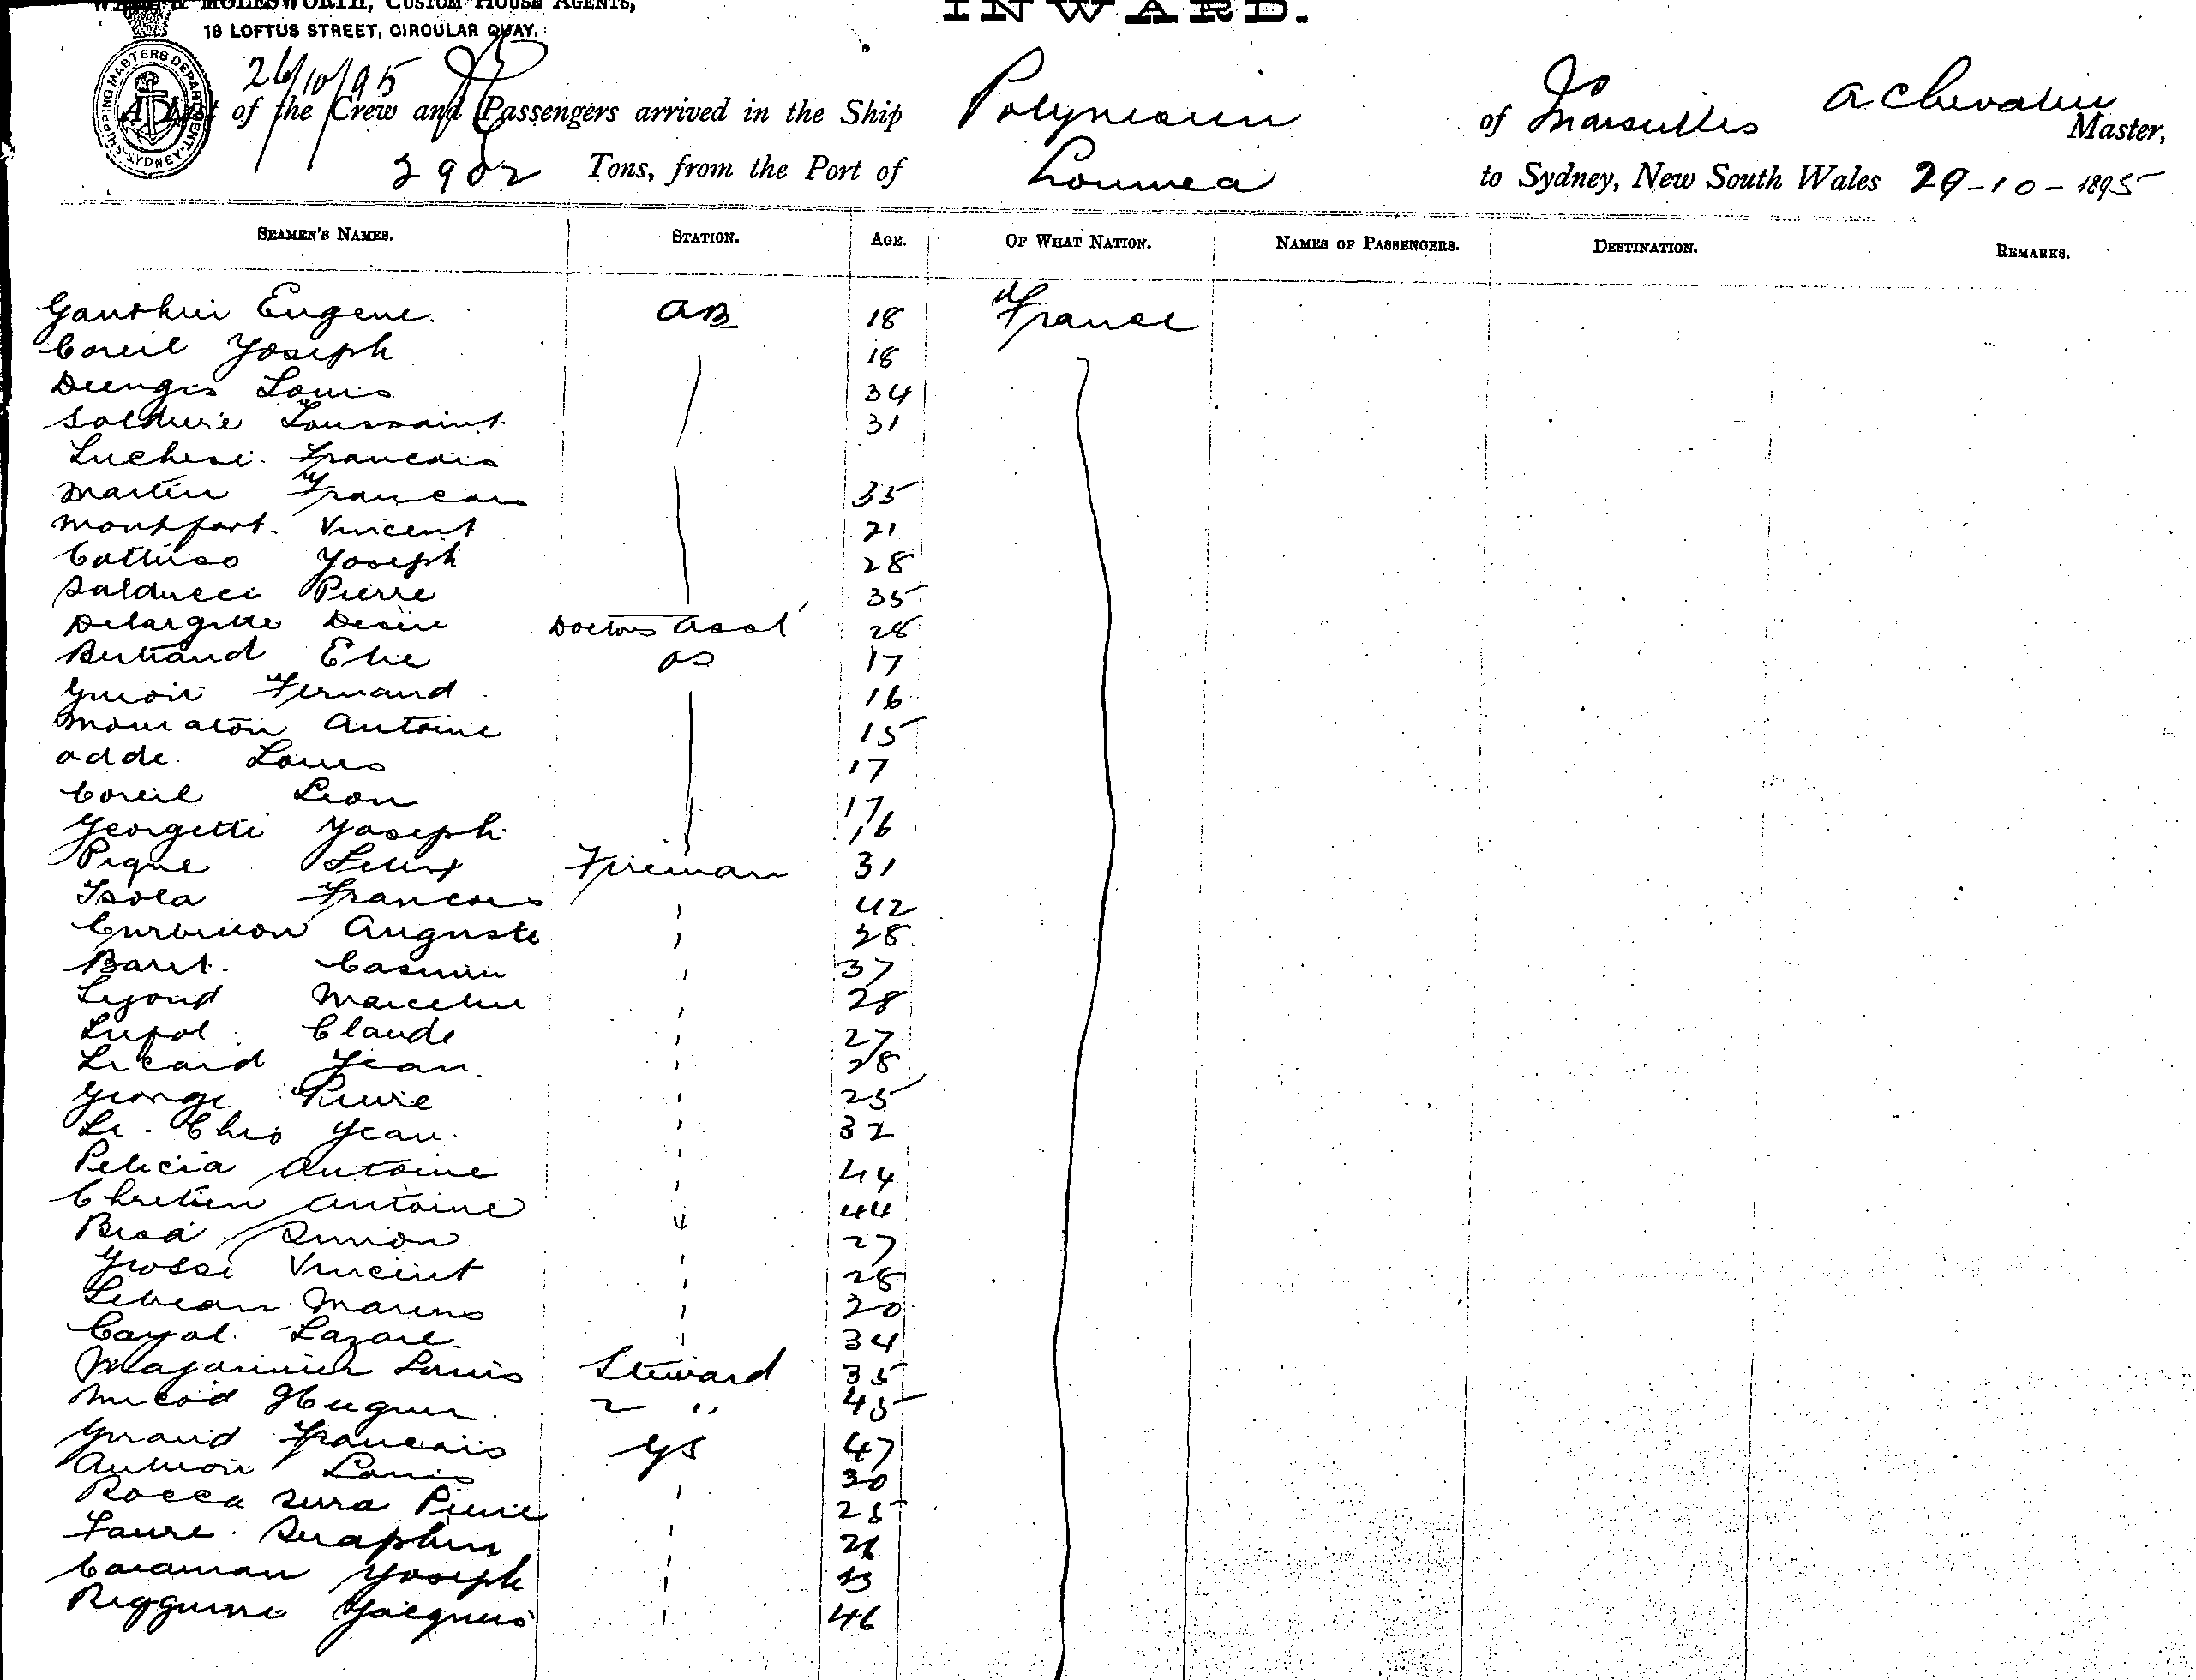 MOLESWORTH, CUSTOM HOUSE AGENTS,
18 LOFTUS STREET, CIRCULAR QUAY.
INWARD.
SHIPPING MASTERS DEPARTMENT SYDNEY
26/10/95
A List of the Crew and Passengers arrived in the Ship Polynesien of Marseilles A Chevalier Master,
2902 Tons, from the Port of Noumea to Sydney, New South Wales 29-10-1895
SEAMEN'S NAMES. STATION. AGE. OF WHAT NATION. NAMES OF PASSENGERS. DESTINATION. REMARKS.
Gauthier Eugene. AB 18 France
Coreil Joseph 18
Louis 34
Toussaint 31
Luchesi. Francois
Martin Francois 35
Montfort. Vincent 21
Cattuso Joseph 28
Salducci Pierre 35
Delargette Desire Doctors Asst 28
Bertrand Elie 17
OS
Fernand 16
Antoine 15
Adde. Louis 17
Coreil Leon 17
Georgetti Joseph 16
Pique Fireman 31
Isola Francois 42
Auguste 28
Baret. Casimir 37
Marcelin 28
Claude 27
Licard Jean. 28
George Pierre 25
Jean. 32
Pelicia Antoine 44
Chretien Antoine 44
Simion 27
Grossi Vincent 28
Lebeau Marius 20
Cayol. Lazare. 34
Louis Steward 35
Micod 2 " 45
Giraud Francois GS 47
Louis 30
Rocca Serra Pierre 25
Faure. Seraphin 26
Caraman Joseph
Jacques 46